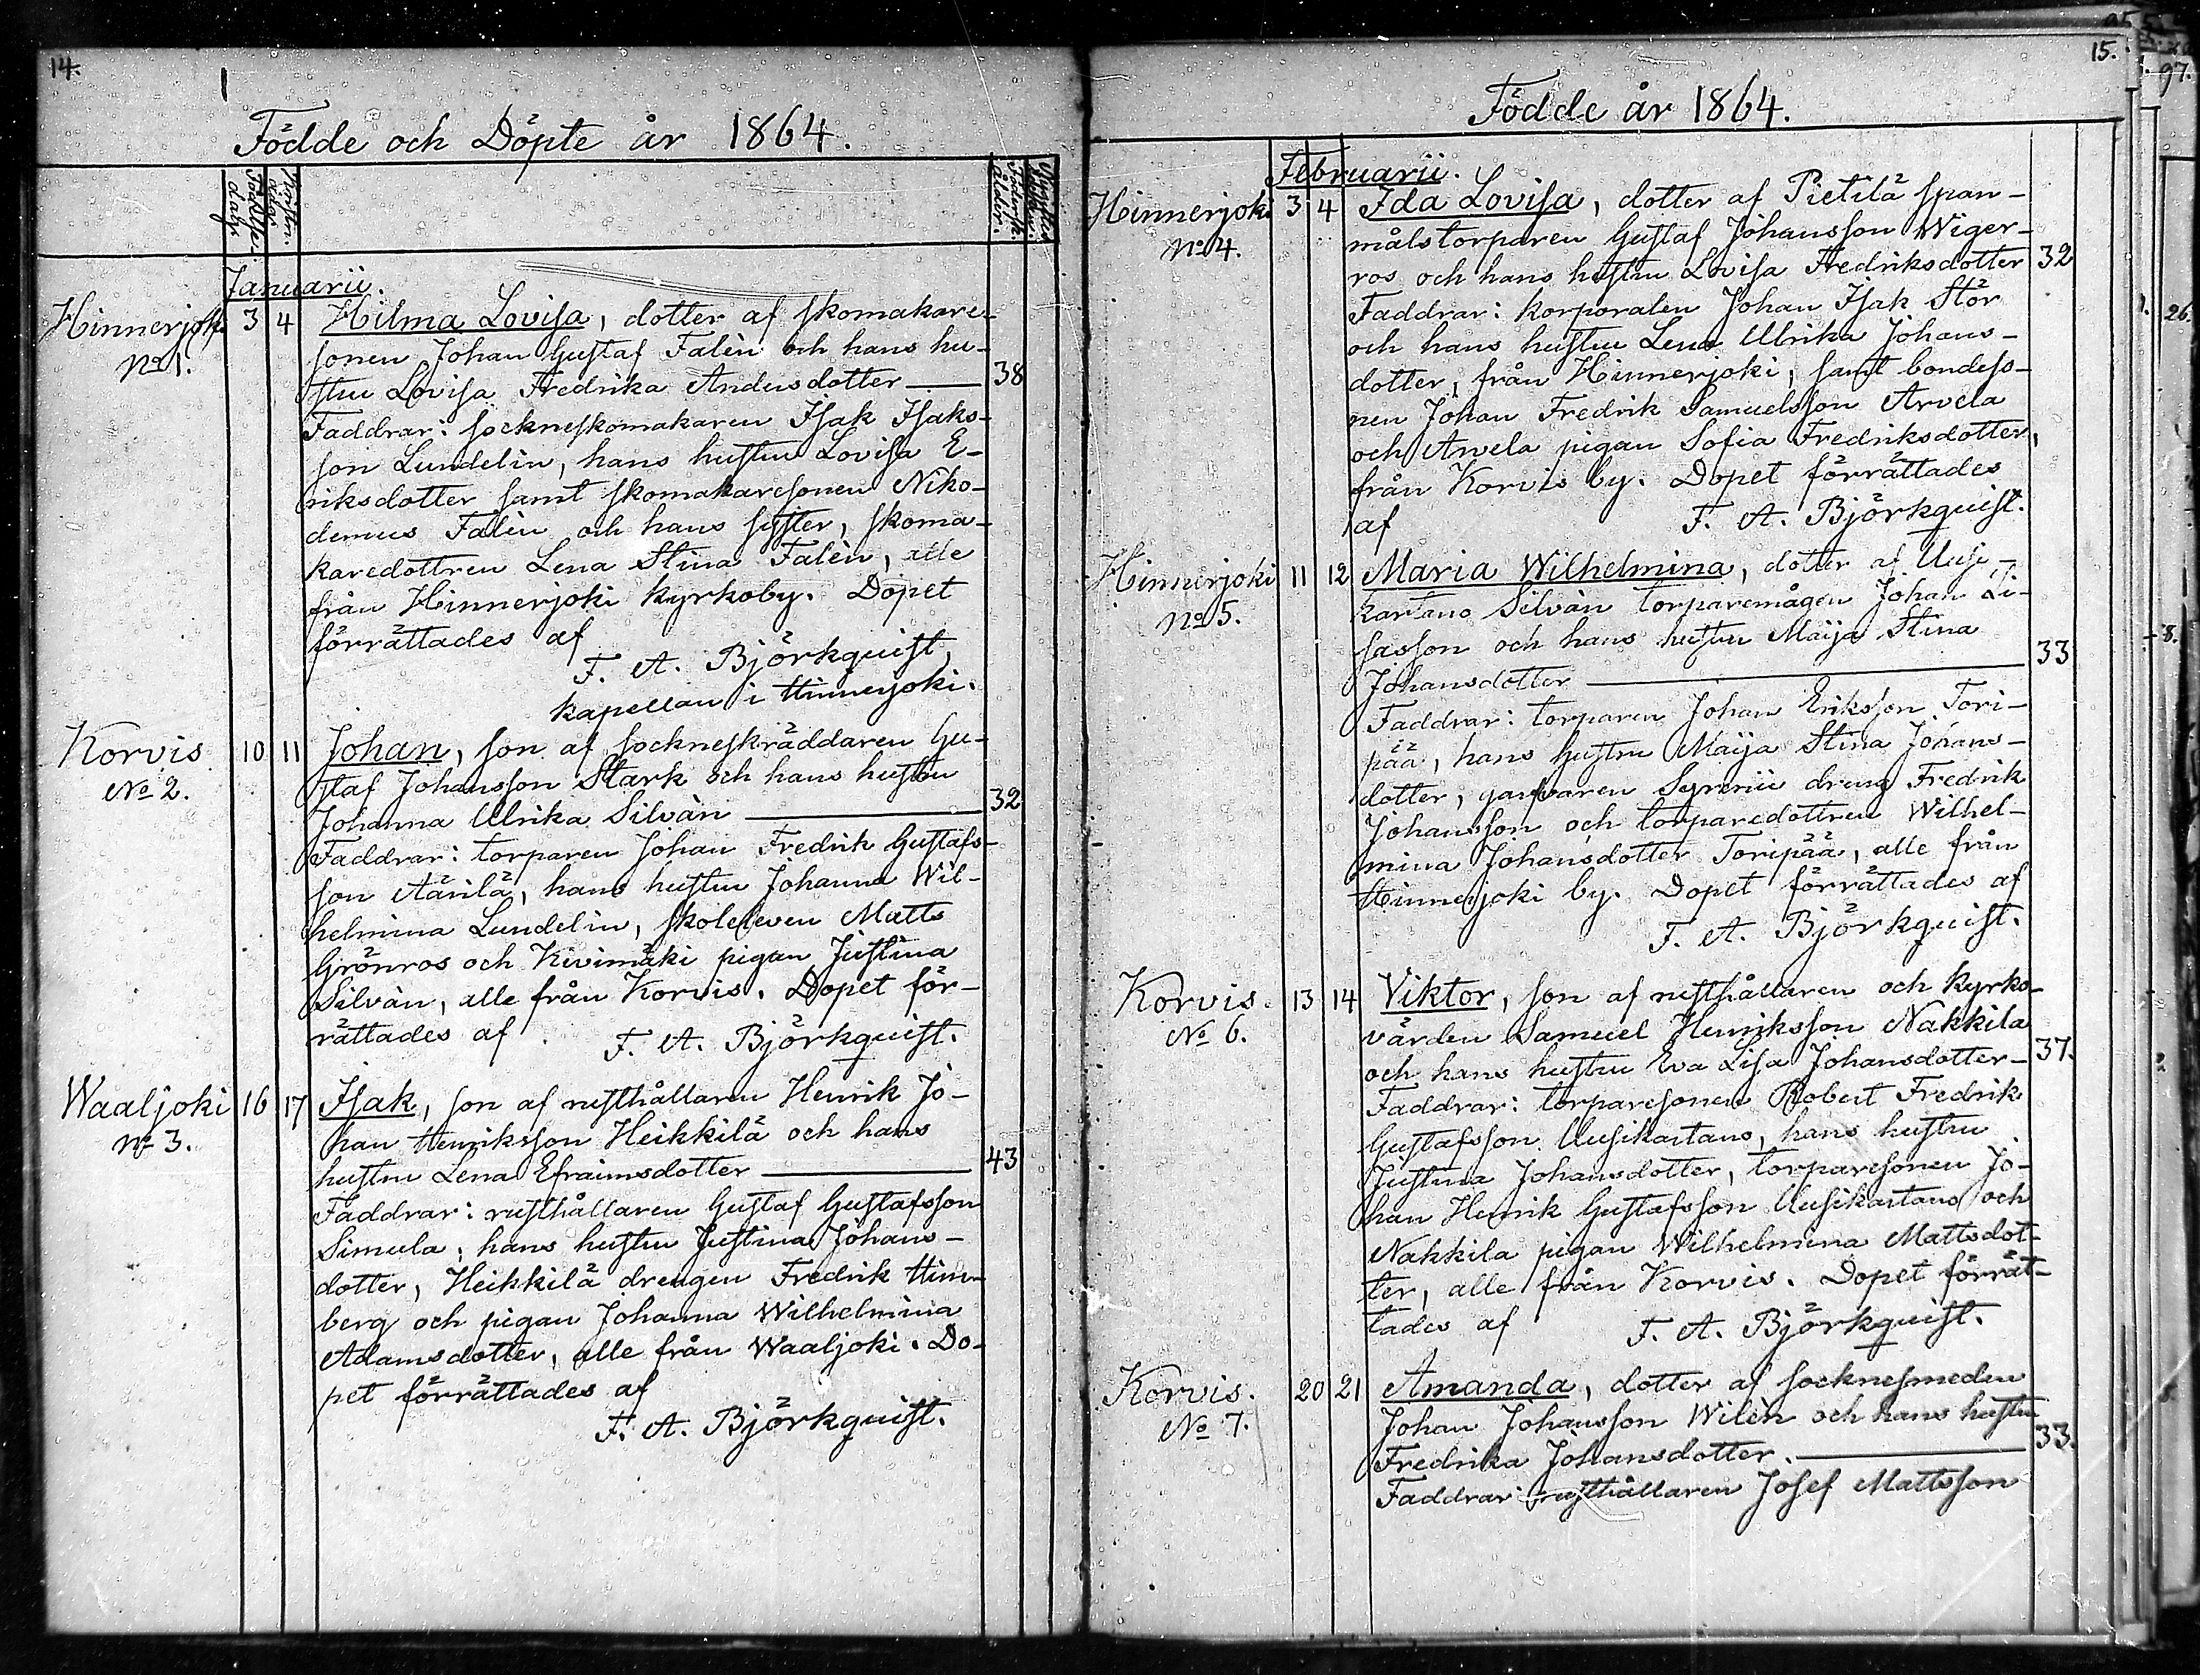 14.
Födde och Döpte år 1864.
Födelse-
dag.
Christn.
dag.
Moderns
ålder.
Januarii.
Hinnerjoki
No 1.
3 4 Hilma Lovisa, dotter af skomakare-
sonen Johan Gustaf Falèn och hans hu-
stru Lovisa Fredrika Andersdotter — 38
Faddrar: sockneskomakaren Isak Isaks-
son Lundelin, hans hustru Lovisa E-
riksdotter samt skomakaresonen Niko-
demus Falèn och hans syster, skoma-
karedottren Lena Stina Falèn, alle
från Hinnerjoki kyrkoby. Dopet
förrättades af
F. A. Björkquist,
kapellan i Hinnerjoki.
Korvis
No 2.
10 11 Johan, son af sockneskräddaren Gu-
staf Johansson Stark och hans hustru
Johanna Ulrika Silvàn — 32
Faddrar: torparen Johan Fredrik Gustafs-
son Äärilä, hans hustru Johanna Wil-
helmina Lundelin, skoleleven Matts
Grönros och Kivimäki pigan Justina
Silvàn, alle från Korvis. Dopet för-
rättades af F. A. Björkquist.
Waaljoki
No 3.
16 17 Isak, son af rusthållaren Henrik Jo-
han Henriksson Heikkilä och hans
hustru Lena Efraimsdotter — 43
Faddrar: rusthållaren Gustaf Gustafsson
Simula, hans hustru Justina Johans-
dotter, Heikkilä drengen Fredrik Him-
berg och pigan Johanna Wilhelmina
Adamsdotter, alle från Waaljoki. Do-
pet förrättades af
F. A. Björkquist.
15.
Födde år 1864.
Februarii.
Hinnerjoki
No 4.
3 4 Ida Lovisa, dotter af Pietilä span-
målstorparen Gustaf Johansson Wiger-
ros och hans hustru Lovisa Fredriksdotter 32
Faddrar: korporalen Johan Isak Stör
och hans hustru Lena Ulrika Johans-
dotter, från Hinnerjoki, samt bondeso-
nen Johan Fredrik Samuelsson Arvela
och Arvela pigan Sofia Fredriksdotter,
från Korvis by. Dopet förrättades
af F. A. Björkquist.
Hinnerjoki
No 5.
11 12 Maria Wilhelmina, dotter af Uusi-
kartano Silvàn torparemågen Johan Li-
sasson och hans hustru Maija Stina
Johansdotter — 33
Faddrar: torparen Johan Eriksson Tori-
pää, hans hustru Maija Stina Johans-
dotter, dreng Fredrik
Johansson och torparedottren Wilhel-
mina Johansdotter Toripää, alle från
Hinnerjoki by. Dopet förrättades af
F. A. Björkquist.
Korvis.
No 6.
13 14 Viktor, son af rusthållaren och kyrko-
värden Samuel Henriksson Nakkila
och hans hustru Eva Lisa Johansdotter — 37.
Faddrar: torparesonen Robert Fredrik
Gustafsson Uusikartano, hans hustru
Justina Johansdotter, torparesonen Jo-
han Henrik Gustafsson Uusikartano och
Nakkila pigan Wilhelmina Mattsdot-
ter, alle från Korvis. Dopet förrät-
tades af F. A. Björkquist.
Korvis.
No 7.
20 21 Amanda, dotter af socknesmeden
Johan Johansson Wilèn och hans hustru
Fredrika Johansdotter. — 33.
Faddrar: rusthållaren Josef Mattsson
97.
26.
8.